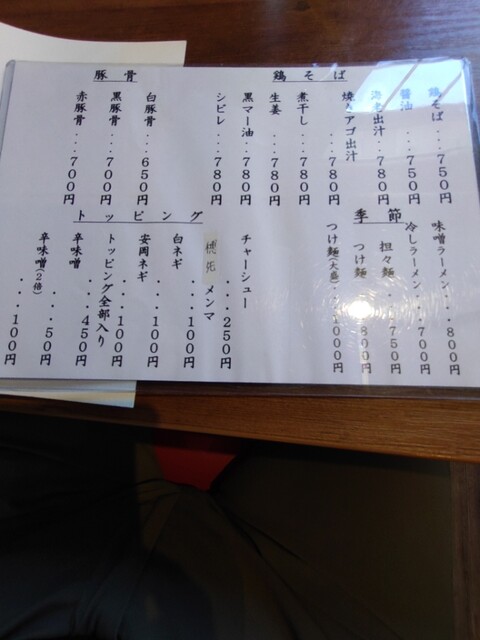 鶏そば
鶏そば...750円
醤油...750円
海老出汁...780円
焼きアゴ出汁...780円
煮干し...780円
生姜...780円
黒マー油...780円
シビレ...780円
豚骨
白豚骨...650円
黒豚骨...700円
赤豚骨...700円
季節
味噌ラーメン...800円
冷しラーメン...700円
担々麺...750円
つけ麺...800円
つけ麺(大盛)...1000円
トッピング
チャーシュー...250円
メンマ
白ネギ...100円
安岡ネギ...100円
トッピング全部入り...450円
辛味噌...50円
辛味噌(2倍)...100円